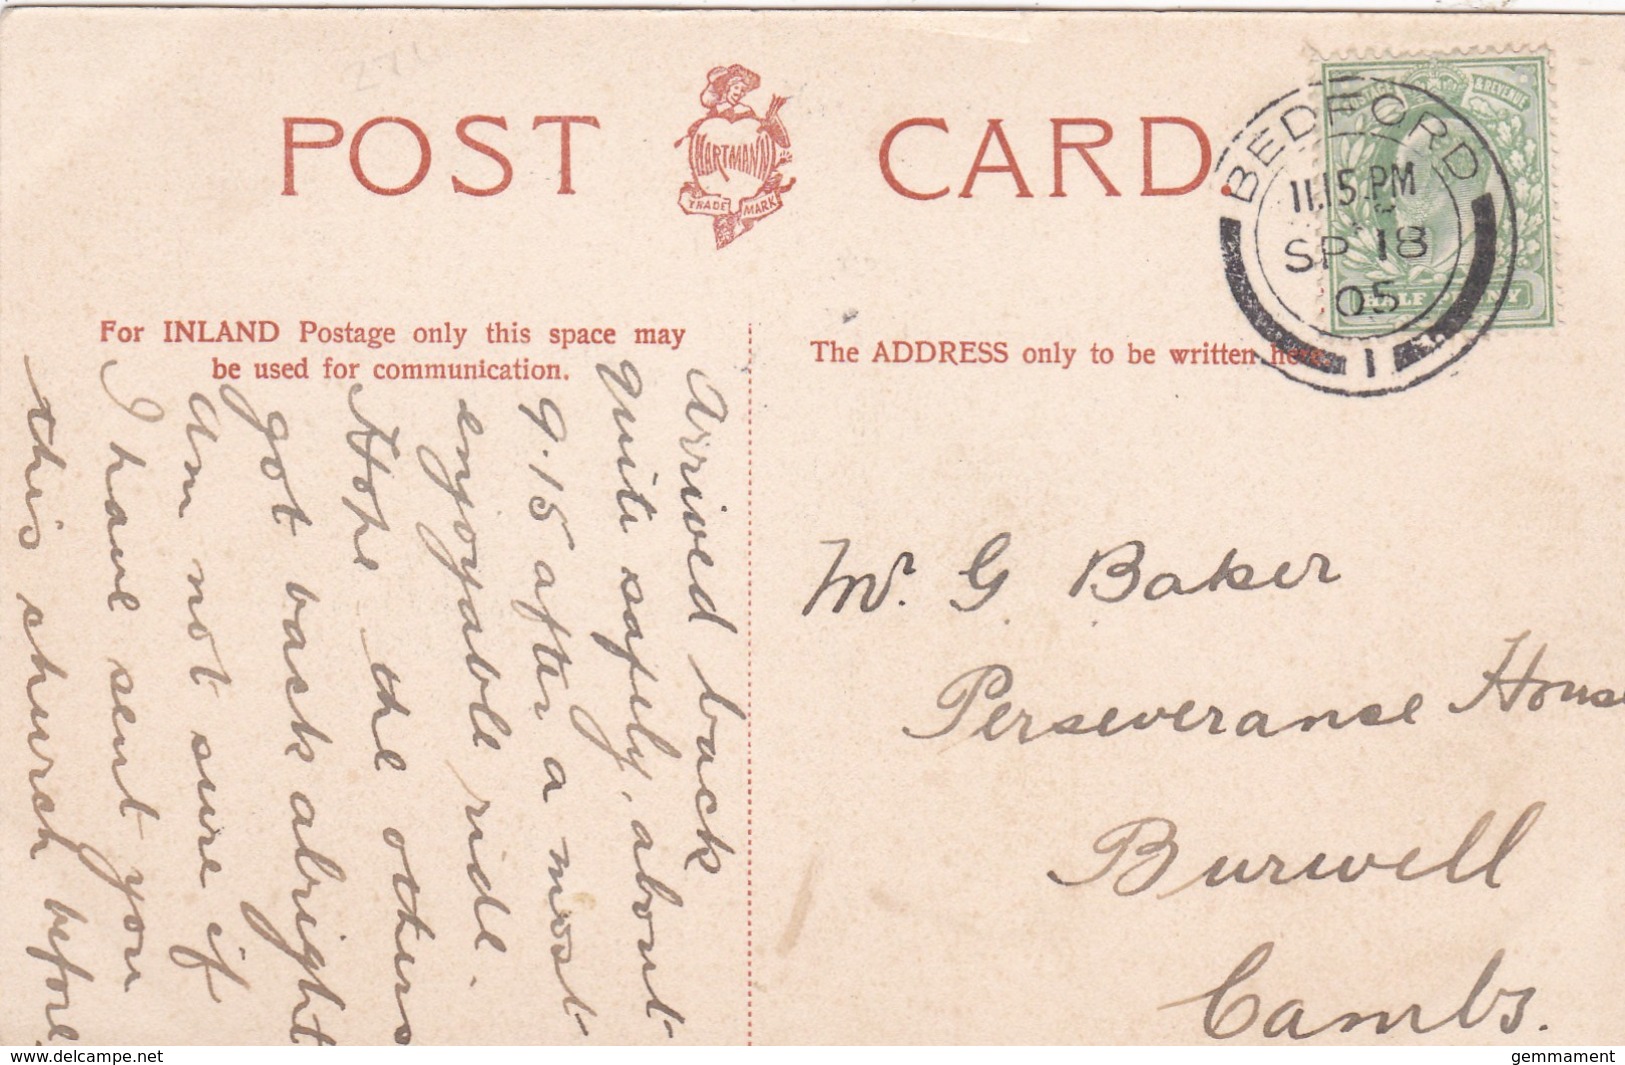 POST CARD.
HARTMANN
TRADE MARK
For INLAND Postage only this space may
be used for communication.
The ADDRESS only to be written here.
POSTAGE & REVENUE
HALF PENNY
BEDFORD
11.15 PM
SP 18
05
1
Arrived back
quite safely, about
9.15 after a most
enjoyable ride.
Hope the others
got back alright
Am not sure if
I have sent you
this church before.
Mr. G Baker
Perseveranse House
Burwell
Cambs.
www.delcampe.net
gemmament